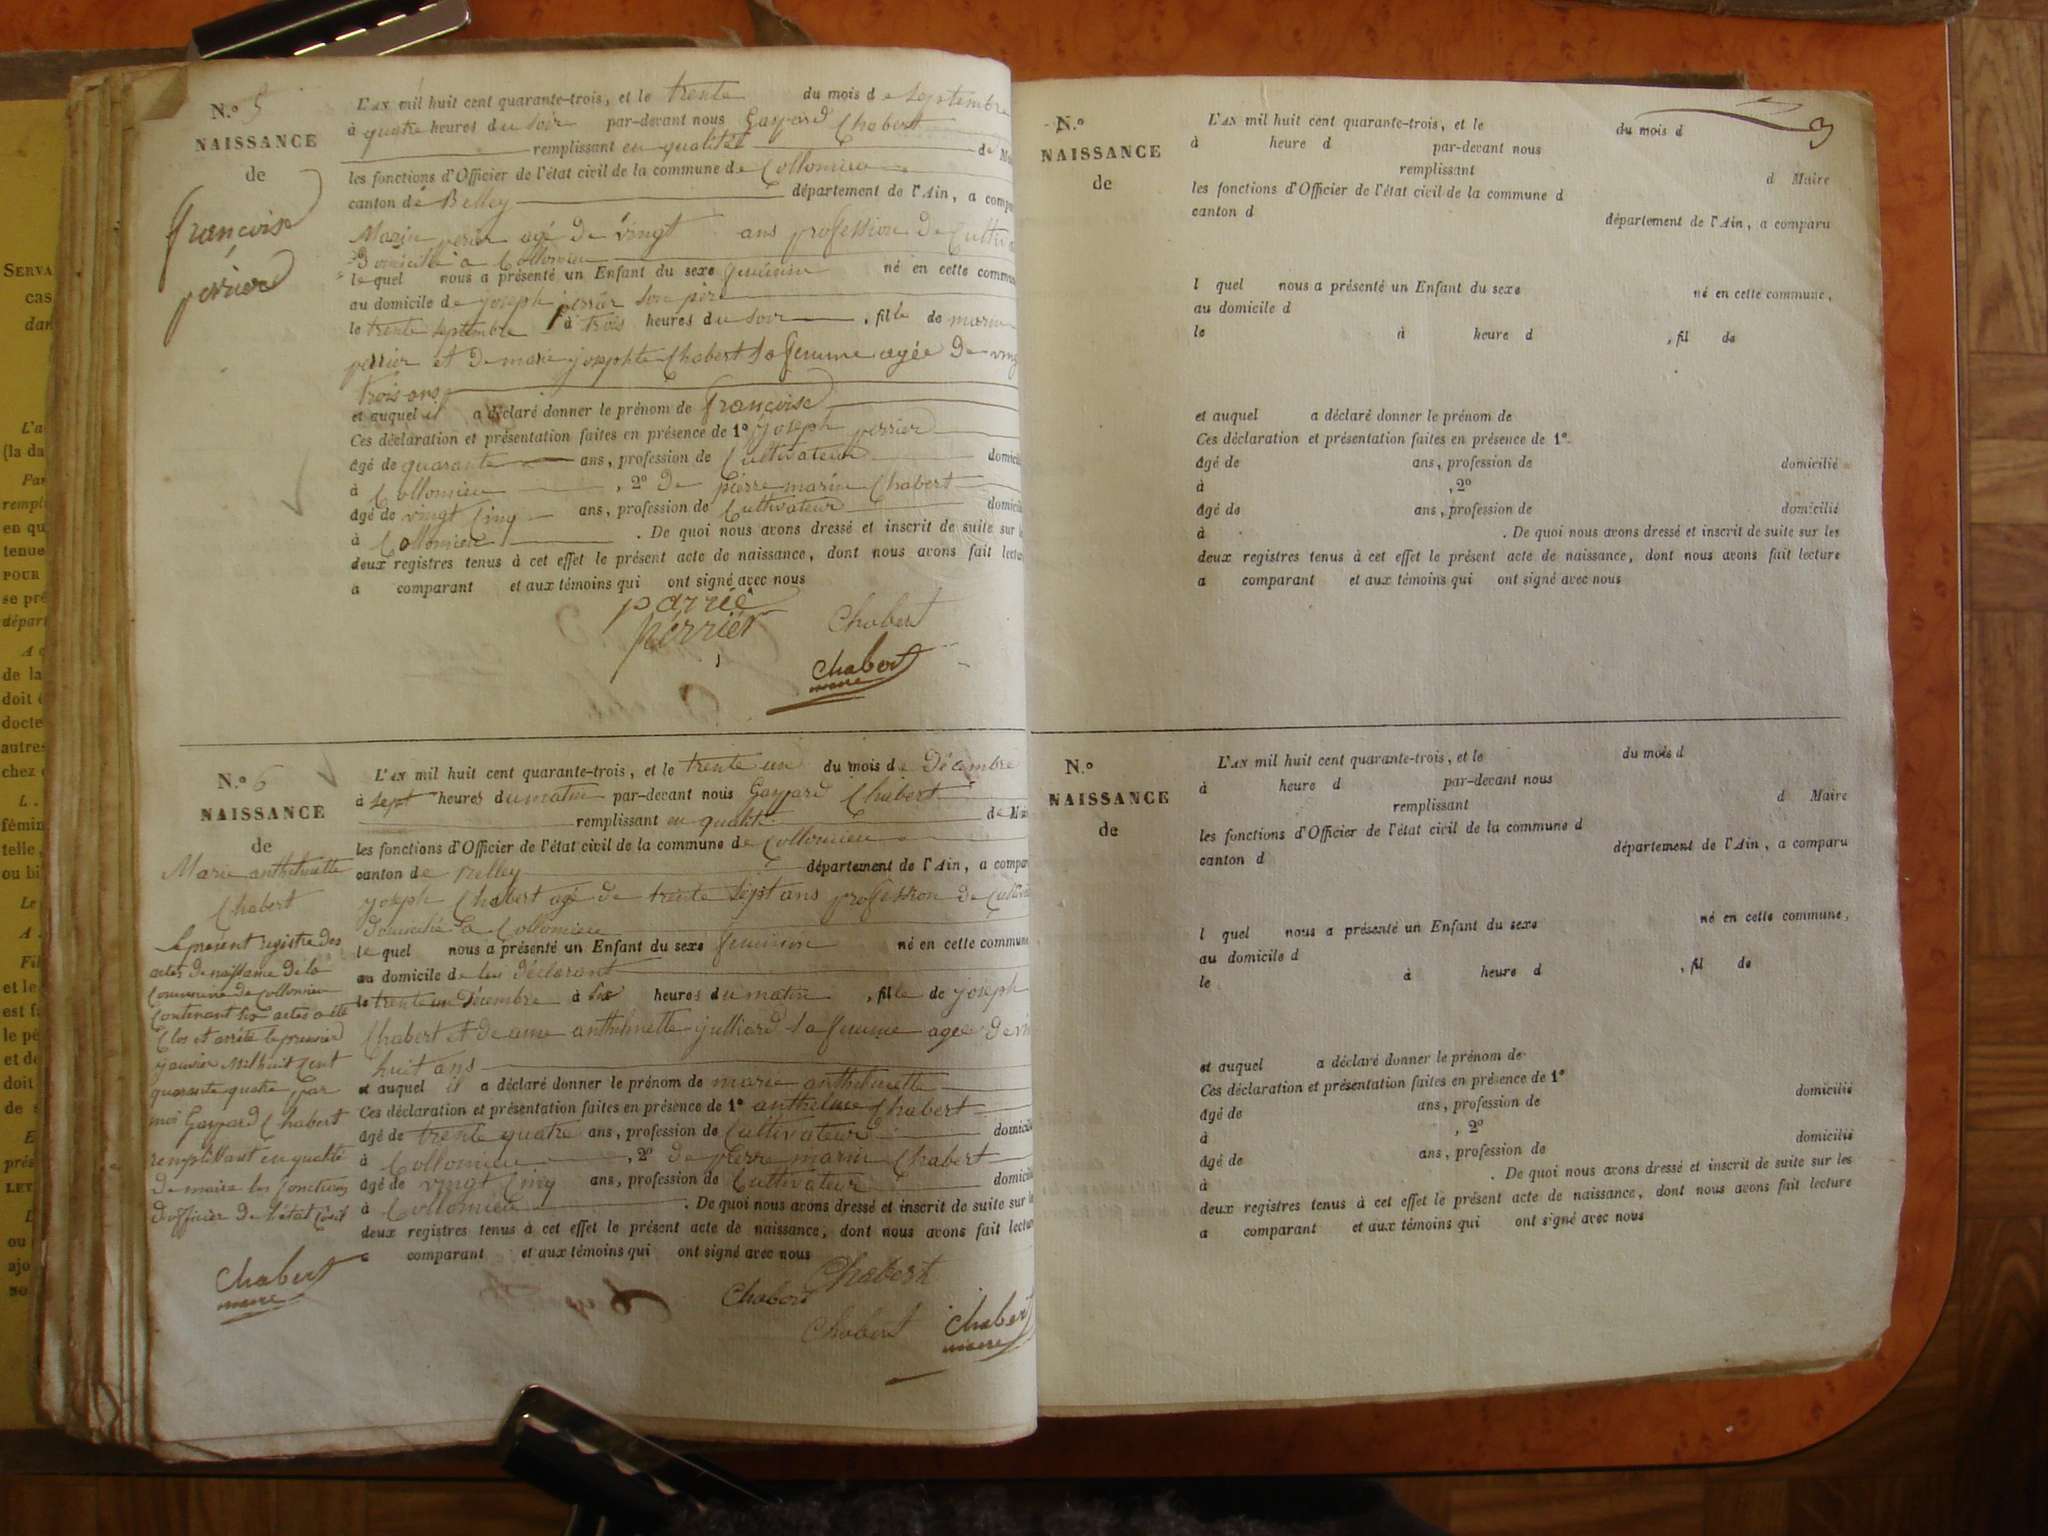 N.o 5
NAISSANCE
de
françoise
perrier
L'AN mil huit cent quarante-trois, et le trente du mois de septembre
à quatre heures du soir par-devant nous Gaspard Chabert
remplissant en qualité de
les fonctions d'Officier de l'état civil de la commune de Collomieu
canton de Belley département de l'Ain, a compa
Marin perier agé de vingt ans profession de Cultiva
Domicilié à Collomieu
le quel nous a présenté un Enfant du sexe féminin né en cette commun
au domicile de joseph perrier son père
le trente septembre à trois heures du soir, fille de marin
perrier et de marie josephte Chabert sa femme agée de ving
trois ans
et auquel il a déclaré donner le prénom de françoise
Ces déclaration et présentation faites en présence de 1o joseph perrier
âgé de quarante ans, profession de Cultivateur domicil
à Collomieu, 2o de pierre marin Chabert
âgé de vingt Cinq ans, profession de Cultivateur domicil
à Collomieu. De quoi nous avons dressé et inscrit de suite sur l
deux registres tenus à cet effet le présent acte de naissance, dont nous avons fait lectur
a comparant et aux témoins qui ont signé avec nous
parrié
perrier Chabert
Chabert
maire
N.o 6
NAISSANCE
de
Marie anthelmette
Chabert
Le present registre des
actes de naissance de la
Commune de Collomieu
Contenant six actes a été
Clos et arrété le premier
janvier Mil huit Cent
quarante quatre par
moi Gaspard Chabert
remplissant en qualité
de maire les fonctions
d'officier de l'état Civil
Chabert
maire
L'AN mil huit cent quarante-trois, et le trente un du mois de Décembre
à sept heures du matin par-devant nous Gaspard Chabert
remplissant en qualité de
les fonctions d'Officier de l'état civil de la commune de Collomieu
canton de Belley département de l'Ain, a compar
joseph Chabert agé de trente sept ans profession de Cultiva
domicilié à Collomieu
le quel nous a présenté un Enfant du sexe féminin né en cette commune
au domicile de lui déclarant
le trente un Décembre à six heures du matin, fille de joseph
Chabert et de anne anthelmette julliard sa femme agée de
huit ans
et auquel il a déclaré donner le prénom de marie anthelmette
Ces déclaration et présentation faites en présence de 1o anthelme Chabert
âgé de trente quatre ans, profession de Cultivateur domicil
à Collomieu, 2o de pierre marin Chabert
âgé de vingt Cinq ans, profession de Cultivateur domicil
à Collomieu. De quoi nous avons dressé et inscrit de suite sur l
deux registres tenus à cet effet le présent acte de naissance, dont nous avons fait lectur
comparant et aux témoins qui ont signé avec nous
Chabert
Chabert
Chabert
Chabert
maire
N.o
NAISSANCE
de
L'AN mil huit cent quarante-trois, et le du mois d
à heure d par-devant nous
remplissant d Maire
les fonctions d'Officier de l'état civil de la commune d
canton d département de l'Ain, a comparu
l quel nous a présenté un Enfant du sexe né en cette commune,
au domicile d
le à heure d, fil de
et auquel a déclaré donner le prénom de
Ces déclaration et présentation faites en présence de 1o
âgé de ans, profession de domicilié
à, 2o
âgé de ans, profession de domicilié
à. De quoi nous avons dressé et inscrit de suite sur les
deux registres tenus à cet effet le présent acte de naissance, dont nous avons fait lecture
a comparant et aux témoins qui ont signé avec nous
N.o
NAISSANCE
de
L'AN mil huit cent quarante-trois, et le du mois d
à heure d par-devant nous
remplissant d Maire
les fonctions d'Officier de l'état civil de la commune d
canton d département de l'Ain, a comparu
l quel nous a présenté un Enfant du sexe né en cette commune,
au domicile d
le à heure d, fil de
et auquel a déclaré donner le prénom de
Ces déclaration et présentation faites en présence de 1o
âgé de ans, profession de domicilié
à, 2o
âgé de ans, profession de domicilié
à. De quoi nous avons dressé et inscrit de suite sur les
deux registres tenus à cet effet le présent acte de naissance, dont nous avons fait lecture
a comparant et aux témoins qui ont signé avec nous